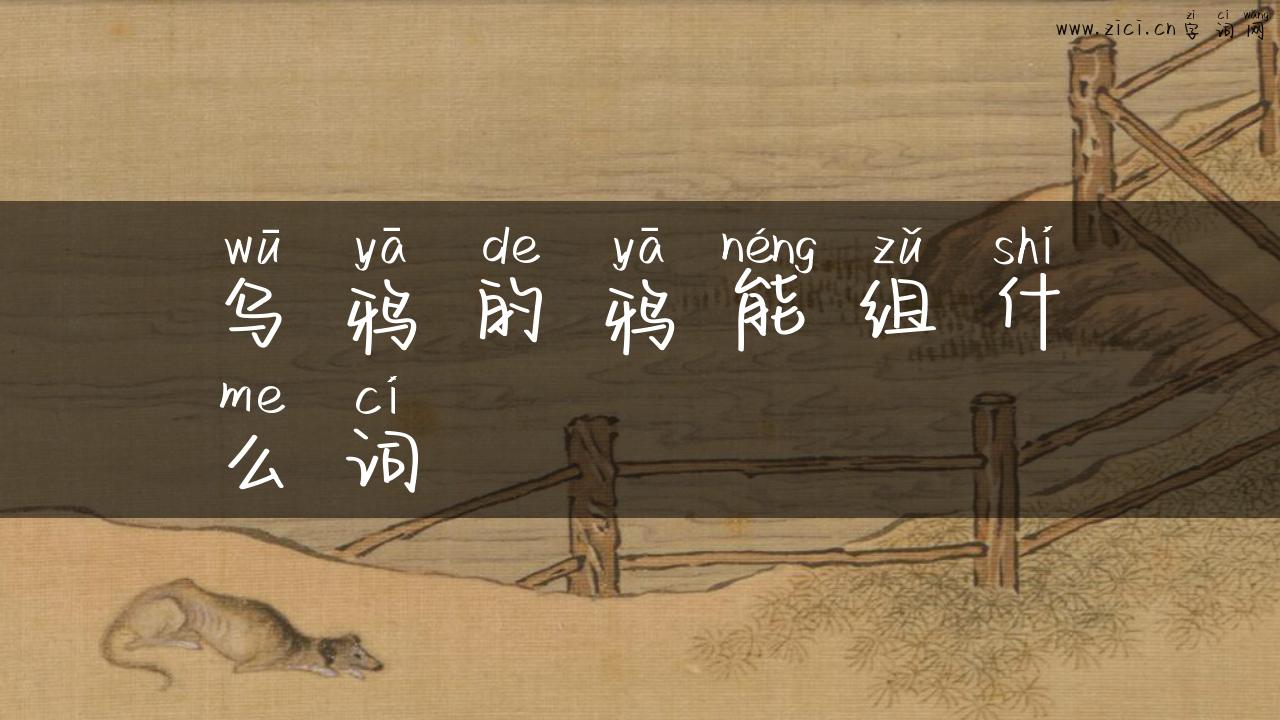 zì cí wǎng
www.zici.cn 字词网
wū yā de yā néng zǔ shí
乌鸦的鸦能组什
me cí
么词